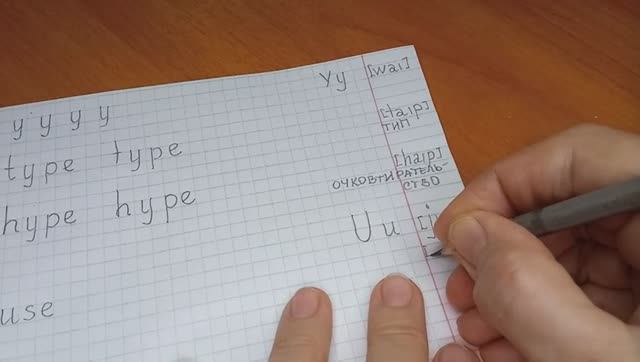 Yy [wai]
y y y y
[taip]
type type
тип
[haip]
очковтиратель-
hype hype
ство
Uu [j
use